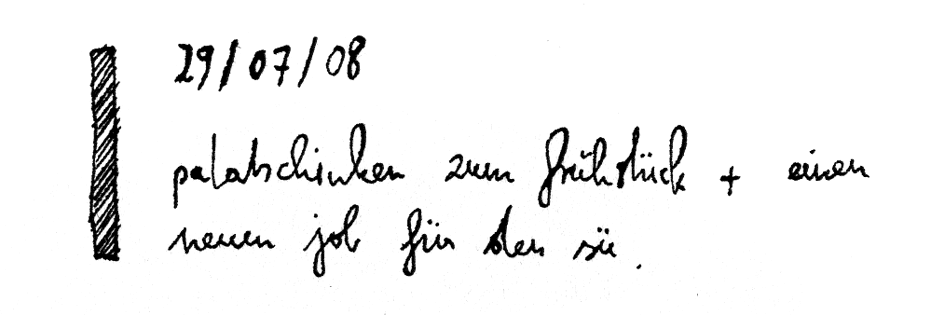 29/07/08
palatschinken zum frühstück + einen
neuen job für den sü.